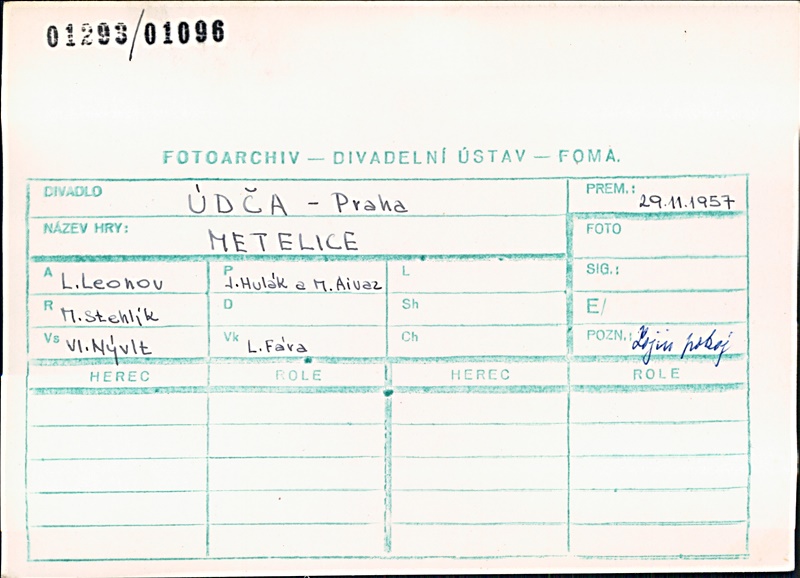 01293/01096
FOTOARCHIV — DIVADELNÍ ÚSTAV — FOMA.
DIVADLO ÚDČA - Praha PREM.: 29.11.1957
NÁZEV HRY: METELICE FOTO
A L. Leonov P J. Hulák a M. Aivaz L SIG.:
R M. Stehlík D Sh E/
Vs Vl. Nývlt Vk L. Fára Ch POZN.: Zojin pokoj
HEREC ROLE HEREC ROLE